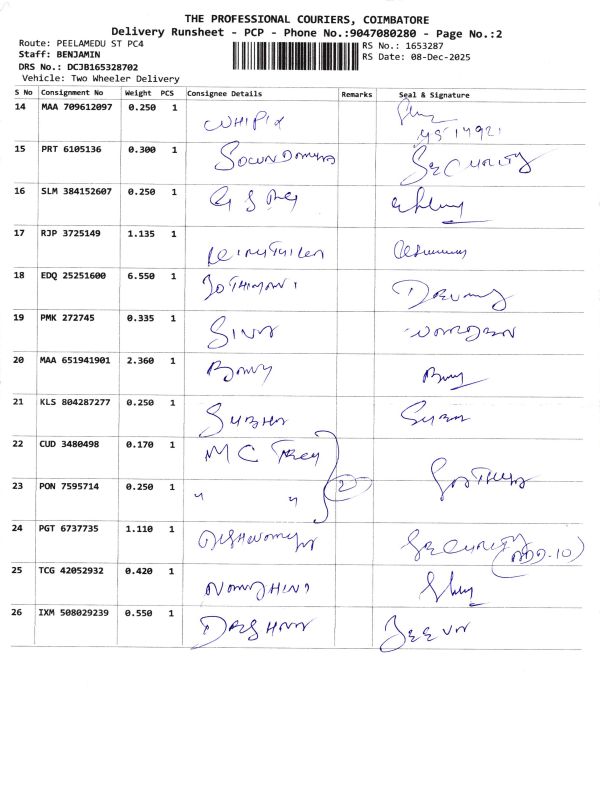 THE PROFESSIONAL COURIERS, COIMBATORE
Delivery Runsheet - PCP - Phone No.:9047080280 - Page No.:2
Route: PEELAMEDU ST PC4
Staff: BENJAMIN
DRS No.: DCJB165328702
Vehicle: Two Wheeler Delivery
RS No.: 1653287
RS Date: 08-Dec-2025
S No Consignment No Weight PCS Consignee Details Remarks Seal & Signature
14 MAA 709612097 0.250 1
15 PRT 6105136 0.300 1 SECURITY
16 SLM 384152607 0.250 1
17 RJP 3725149 1.135 1
18 EDQ 25251600 6.550 1
19 PMK 272745 0.335 1 SIVA
20 MAA 651941901 2.360 1
21 KLS 804287277 0.250 1 SUBHA
22 CUD 3480498 0.170 1 M C
23 PON 7595714 0.250 1 " " 2
24 PGT 6737735 1.110 1 SECURITY
25 TCG 42052932 0.420 1
26 IXM 508029239 0.550 1 JEEVA